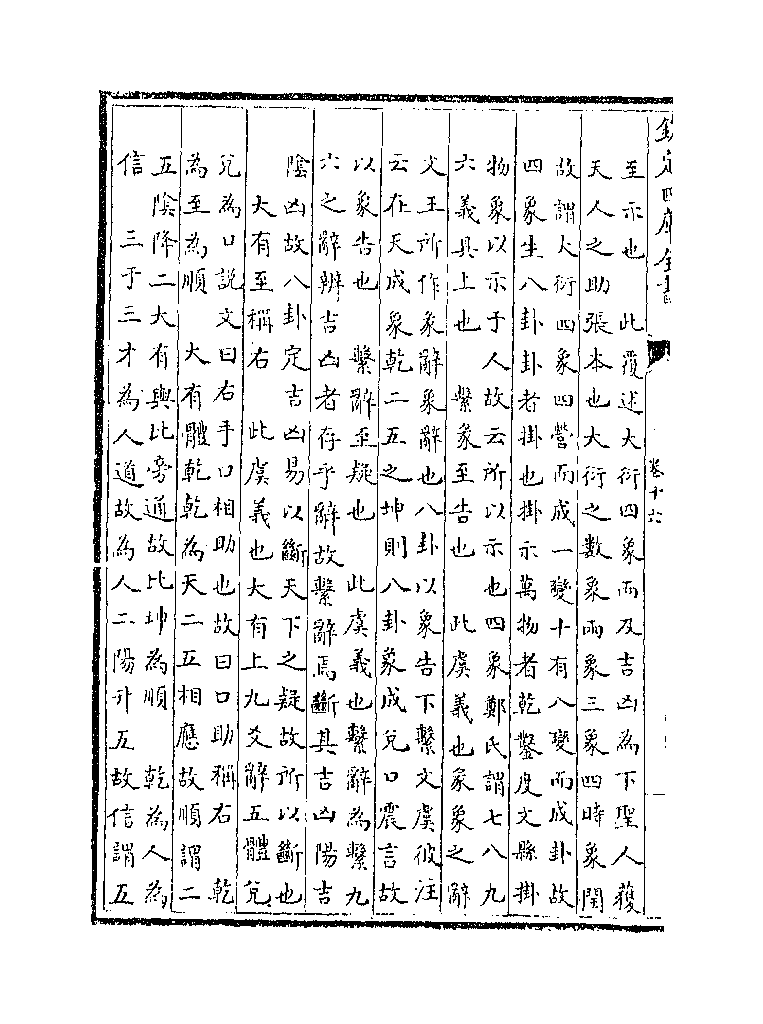 欽定四庫全書 卷十六
至示也 此覆述大衍四象而及吉凶為下聖人獲
天人之助張本也大衍之數象兩象三象四時象閏
故謂大衍四象四營而成一變十有八變而成卦故
四象生八卦卦者掛也掛示萬物者乾鑿度文縣掛
物象以示于人故云所以示也四象鄭氏謂七八九
六義具上也 繫象至告也 此虞義也彖象之辭
文王所作彖辭象辭也八卦以象告下繫文虞彼注
云在天成象乾二五之坤則八卦象成兌口震言故
以象告也 繫辭至疑也 此虞義也繫辭為繫九
六之辭辨吉凶者存乎辭故繫辭焉斷其吉凶陽吉
陰凶故八卦定吉凶易以斷天下之疑故所以斷也
大有至稱右 此虞義也大有上九爻辭五體兌
兌為口說文曰右手口相助也故曰口助稱右 乾
為至為順 大有體乾乾為天二五相應故順謂二
五陰降二大有與比旁通故比坤為順 乾為人為
信 三于三才為人道故為人二陽升五故信謂五